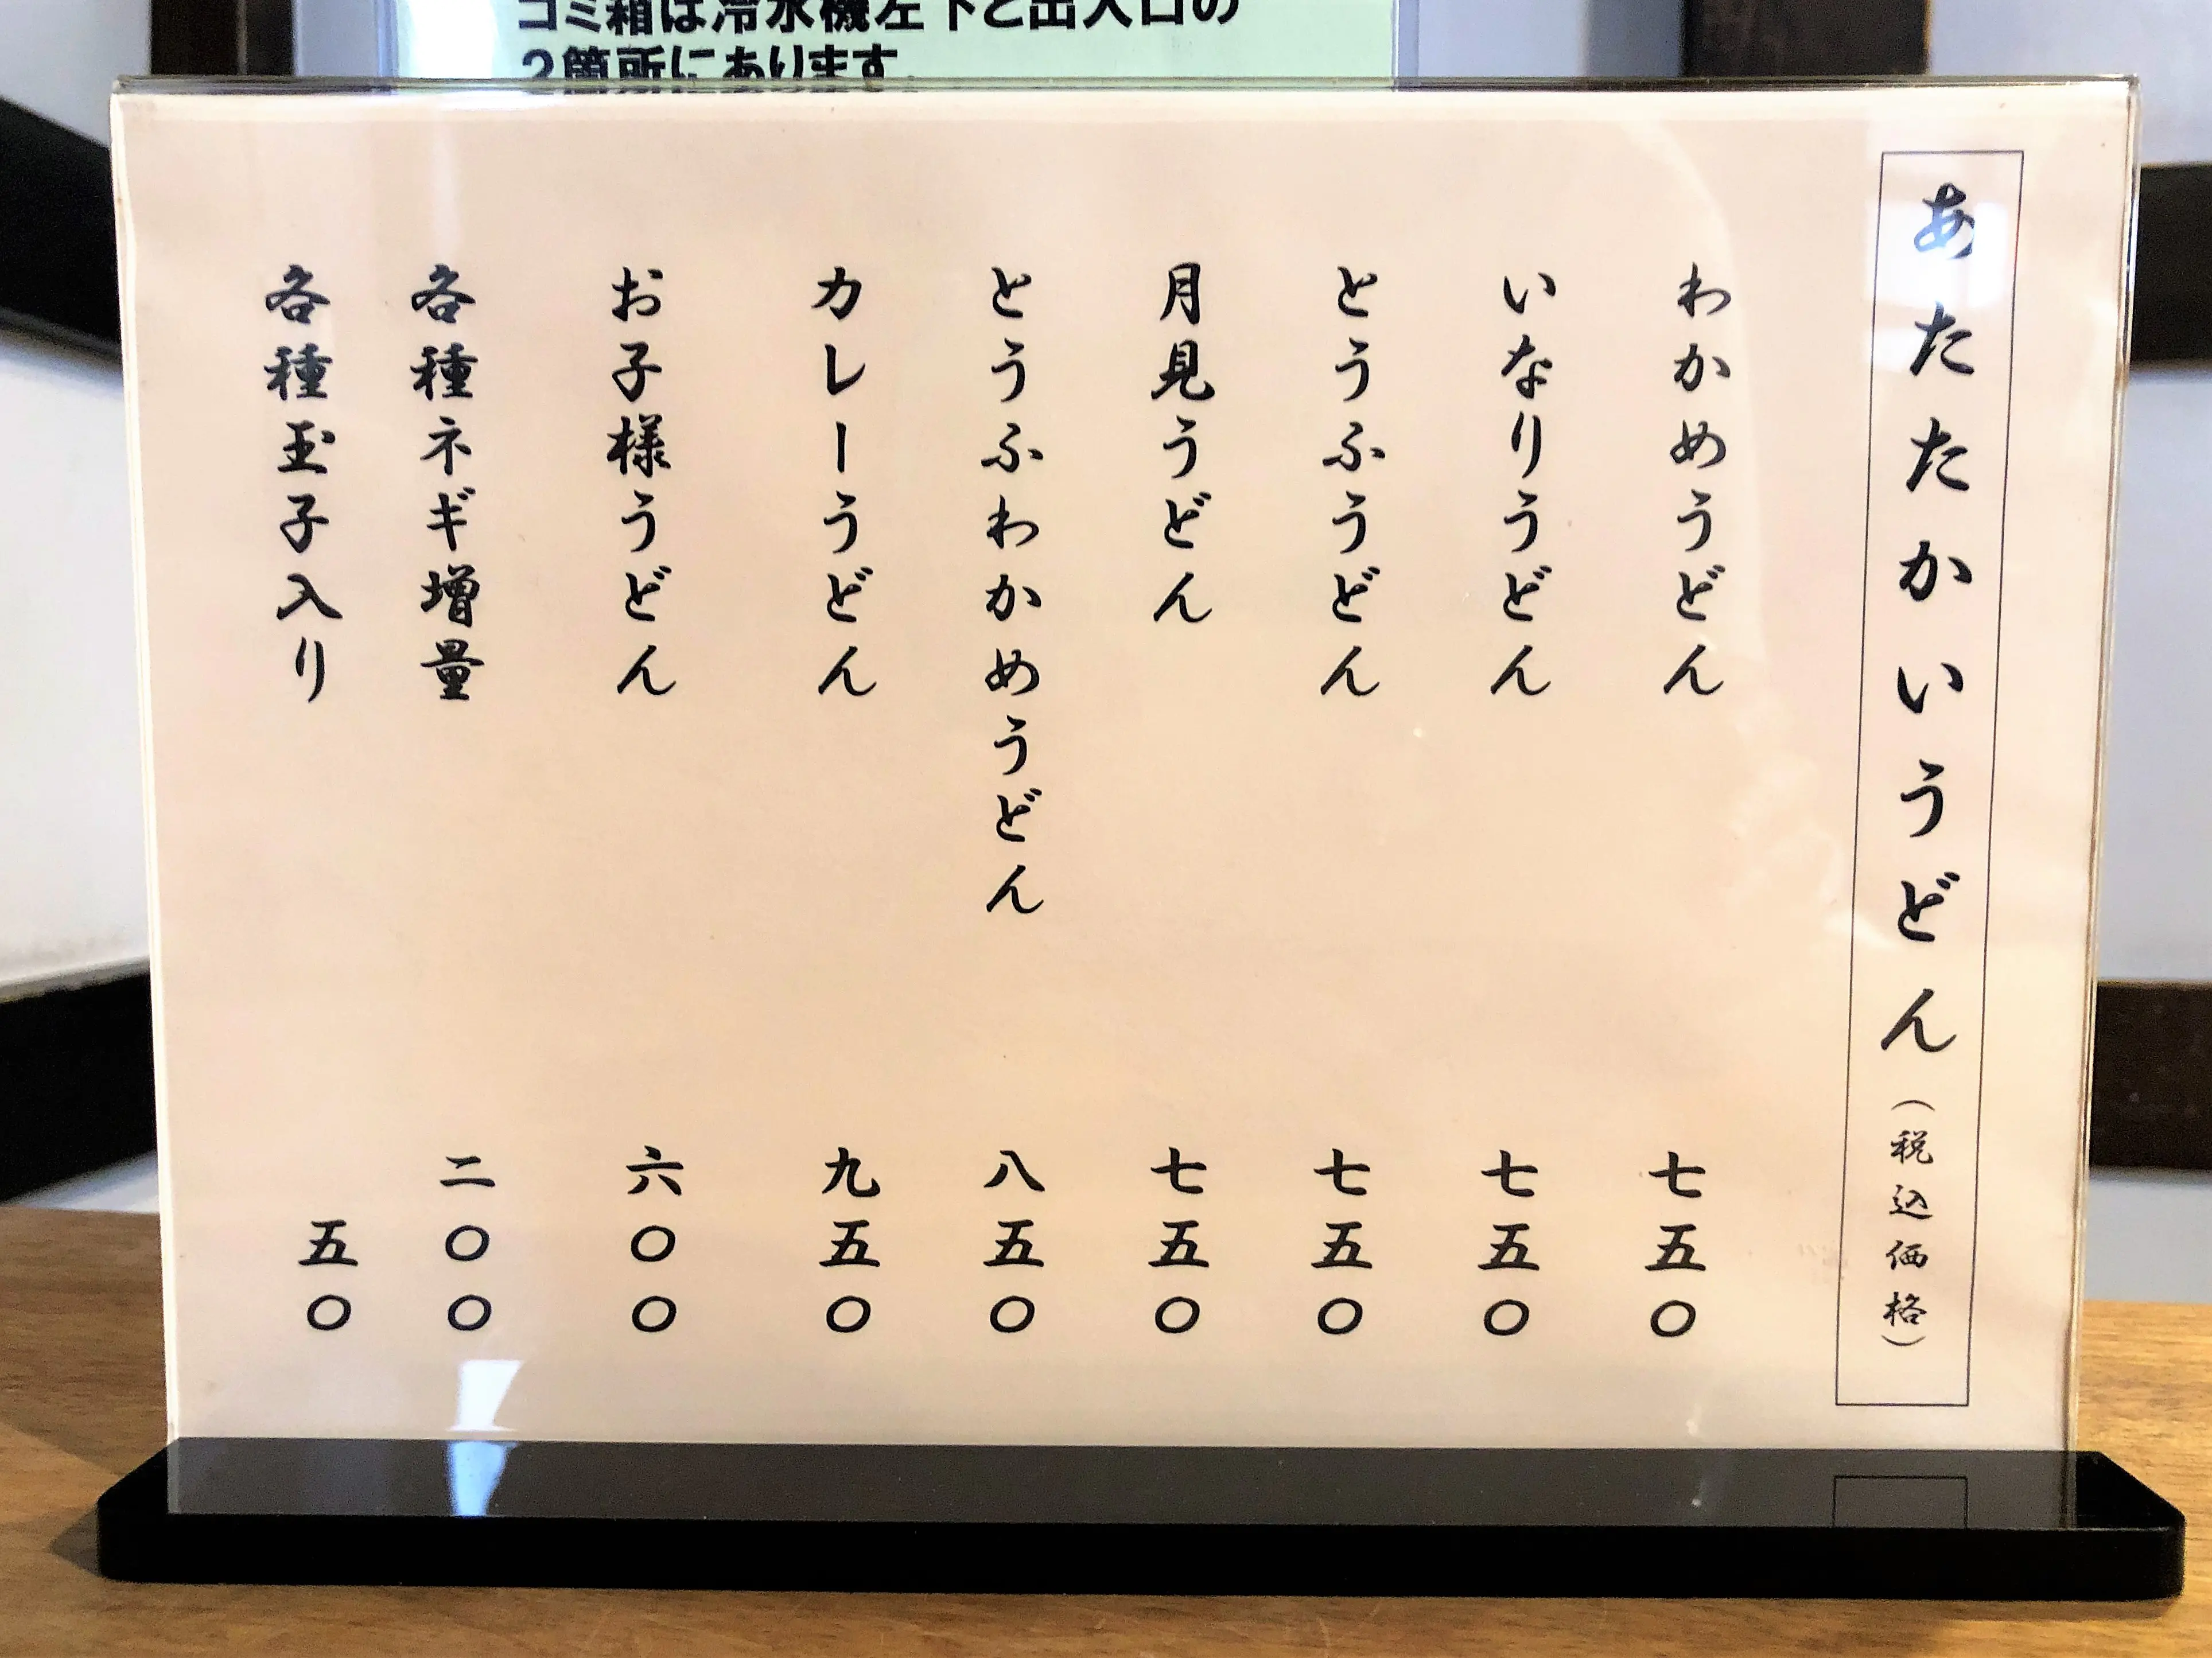 ゴミ箱は冷水機左下と出入口の
2箇所にあります。
あたたかいうどん（税込価格）
わかめうどん 七五〇
いなりうどん 七五〇
とうふうどん 七五〇
月見うどん 七五〇
とうふわかめうどん 八五〇
カレーうどん 九五〇
お子様うどん 六〇〇
各種ネギ増量 二〇〇
各種玉子入り 五〇